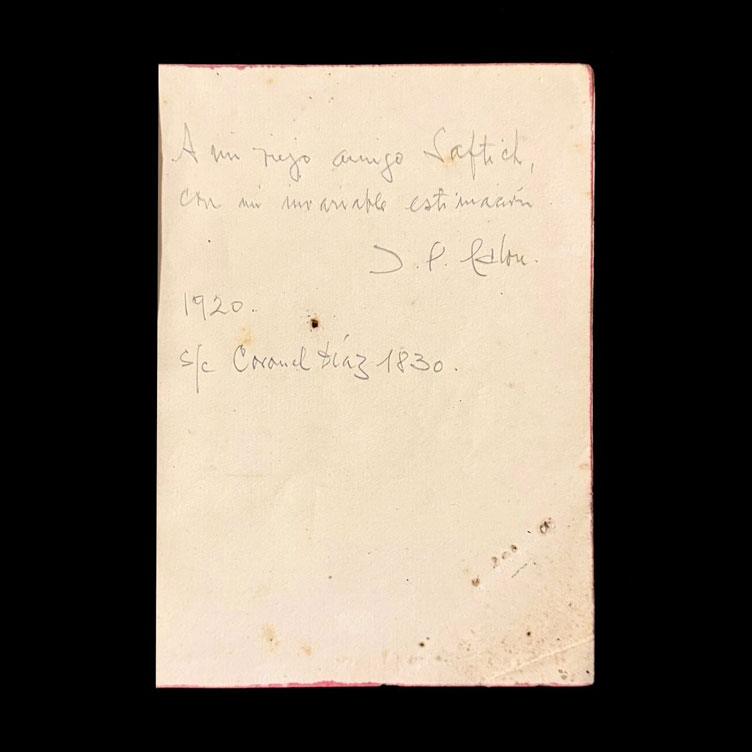 A mi viejo amigo Saftich,
con mi invariable estimación
J. P.
1920.
s/c Coronel Díaz 1830.